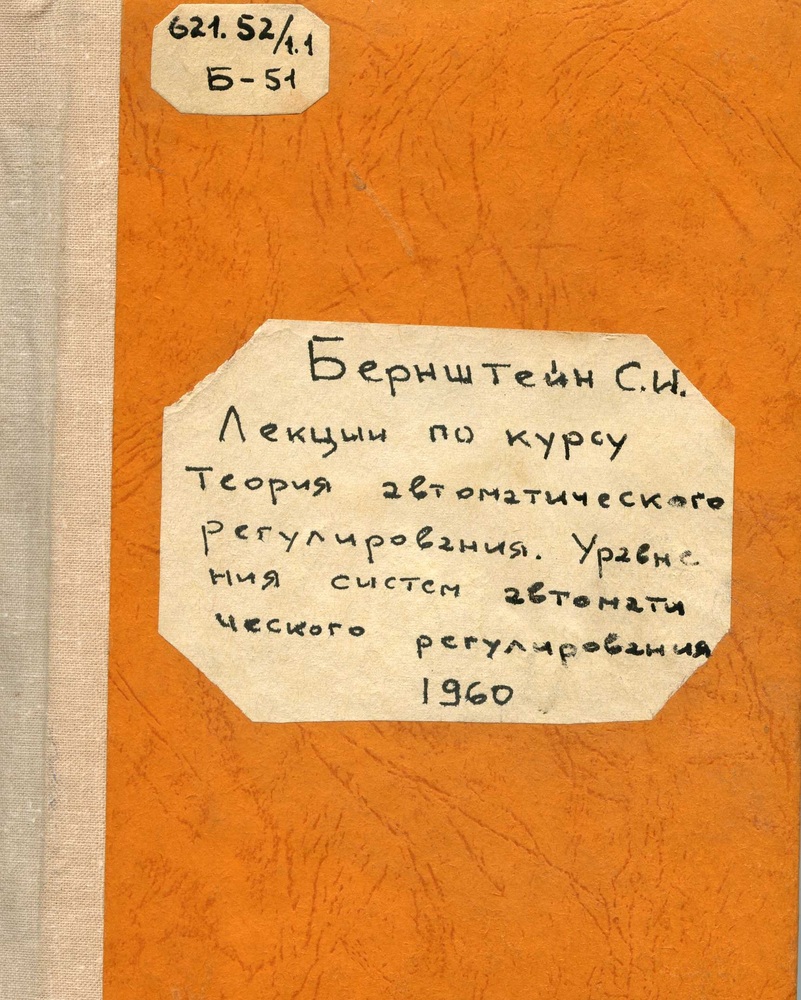 621.52/1.1
Б-51
Бернштейн С.И.
Лекции по курсу
Теория автоматического
регулирования. Уравне
ния систем автомати
ческого регулирования
1960